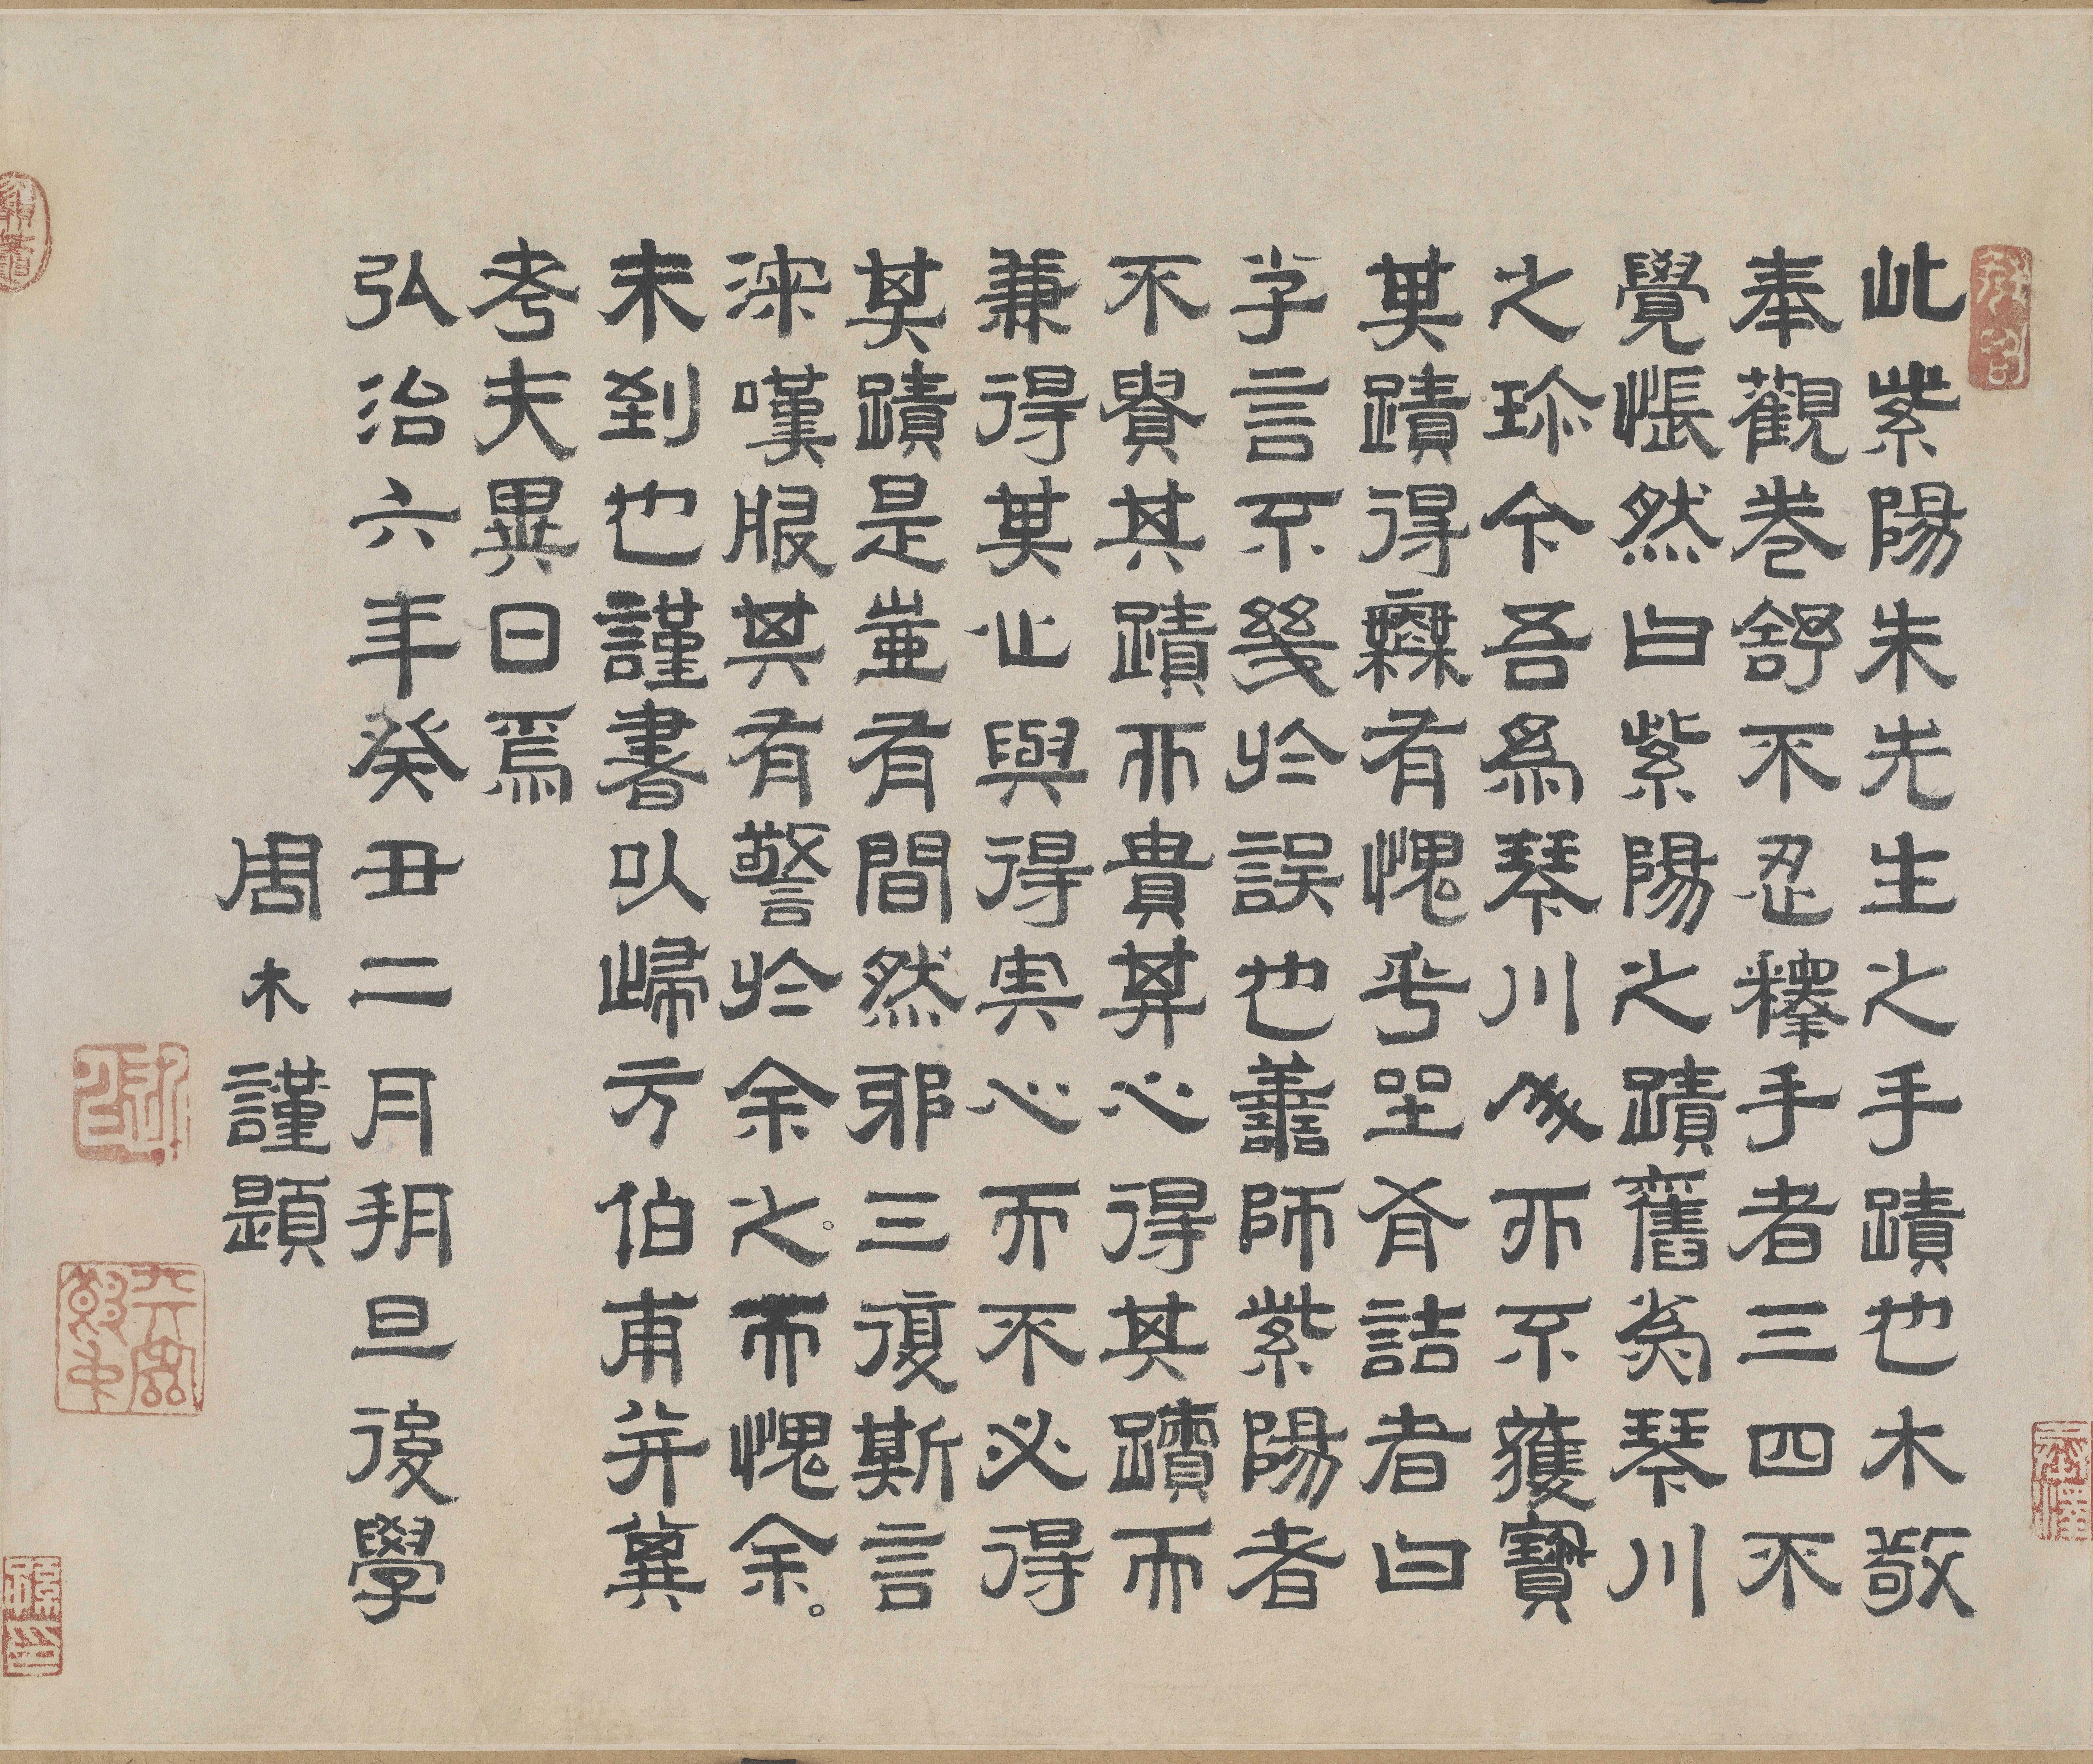 此紫陽朱先生之手蹟也木敬
奉觀卷舒不忍釋手者三四不
覺悵然曰紫陽之蹟舊為琴川
之珍今吾為琴川人而不獲寶
其蹟得無有愧乎坐有詰者曰
子言不幾於誤也善師紫陽者
不貴其蹟而貴其心得其蹟而
兼得其心與得其心而不必得
其蹟是豈有間然邪三復斯言
深嘆服其有警於余之而愧余
未到也謹書以歸方伯甫并冀
考夫異日焉
弘治六年癸丑二月朔旦後學
周木謹題